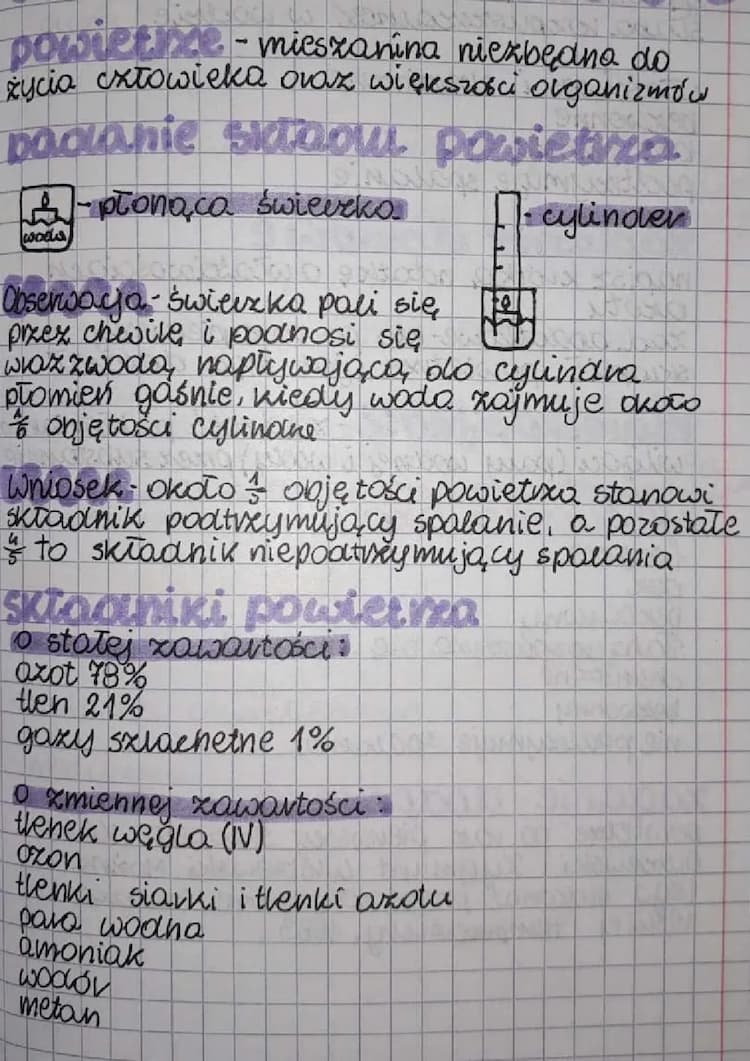 powietrze - mieszanina niezbędna do
życia człowieka oraz większości organizmów
badanie składu powietrza
woda
- płonąca świeczka
- cylinder
Obserwacja - świeczka pali się
przez chwilę i podnosi się
wraz z wodą napływającą do cylindra
płomień gaśnie, kiedy woda zajmuje około
objętości cylindra
Wniosek - około 1/5 objętości powietrza stanowi
składnik podtrzymujący spalanie, a pozostałe
4/5 to składnik niepodtrzymujący spalania
składniki powietrza
o stałej zawartości:
azot 78%
tlen 21%
gazy szlachetne 1%
o zmiennej zawartości:
tlenek węgla (IV)
ozon
tlenki siarki i tlenki azotu
para wodna
amoniak
wodór
metan